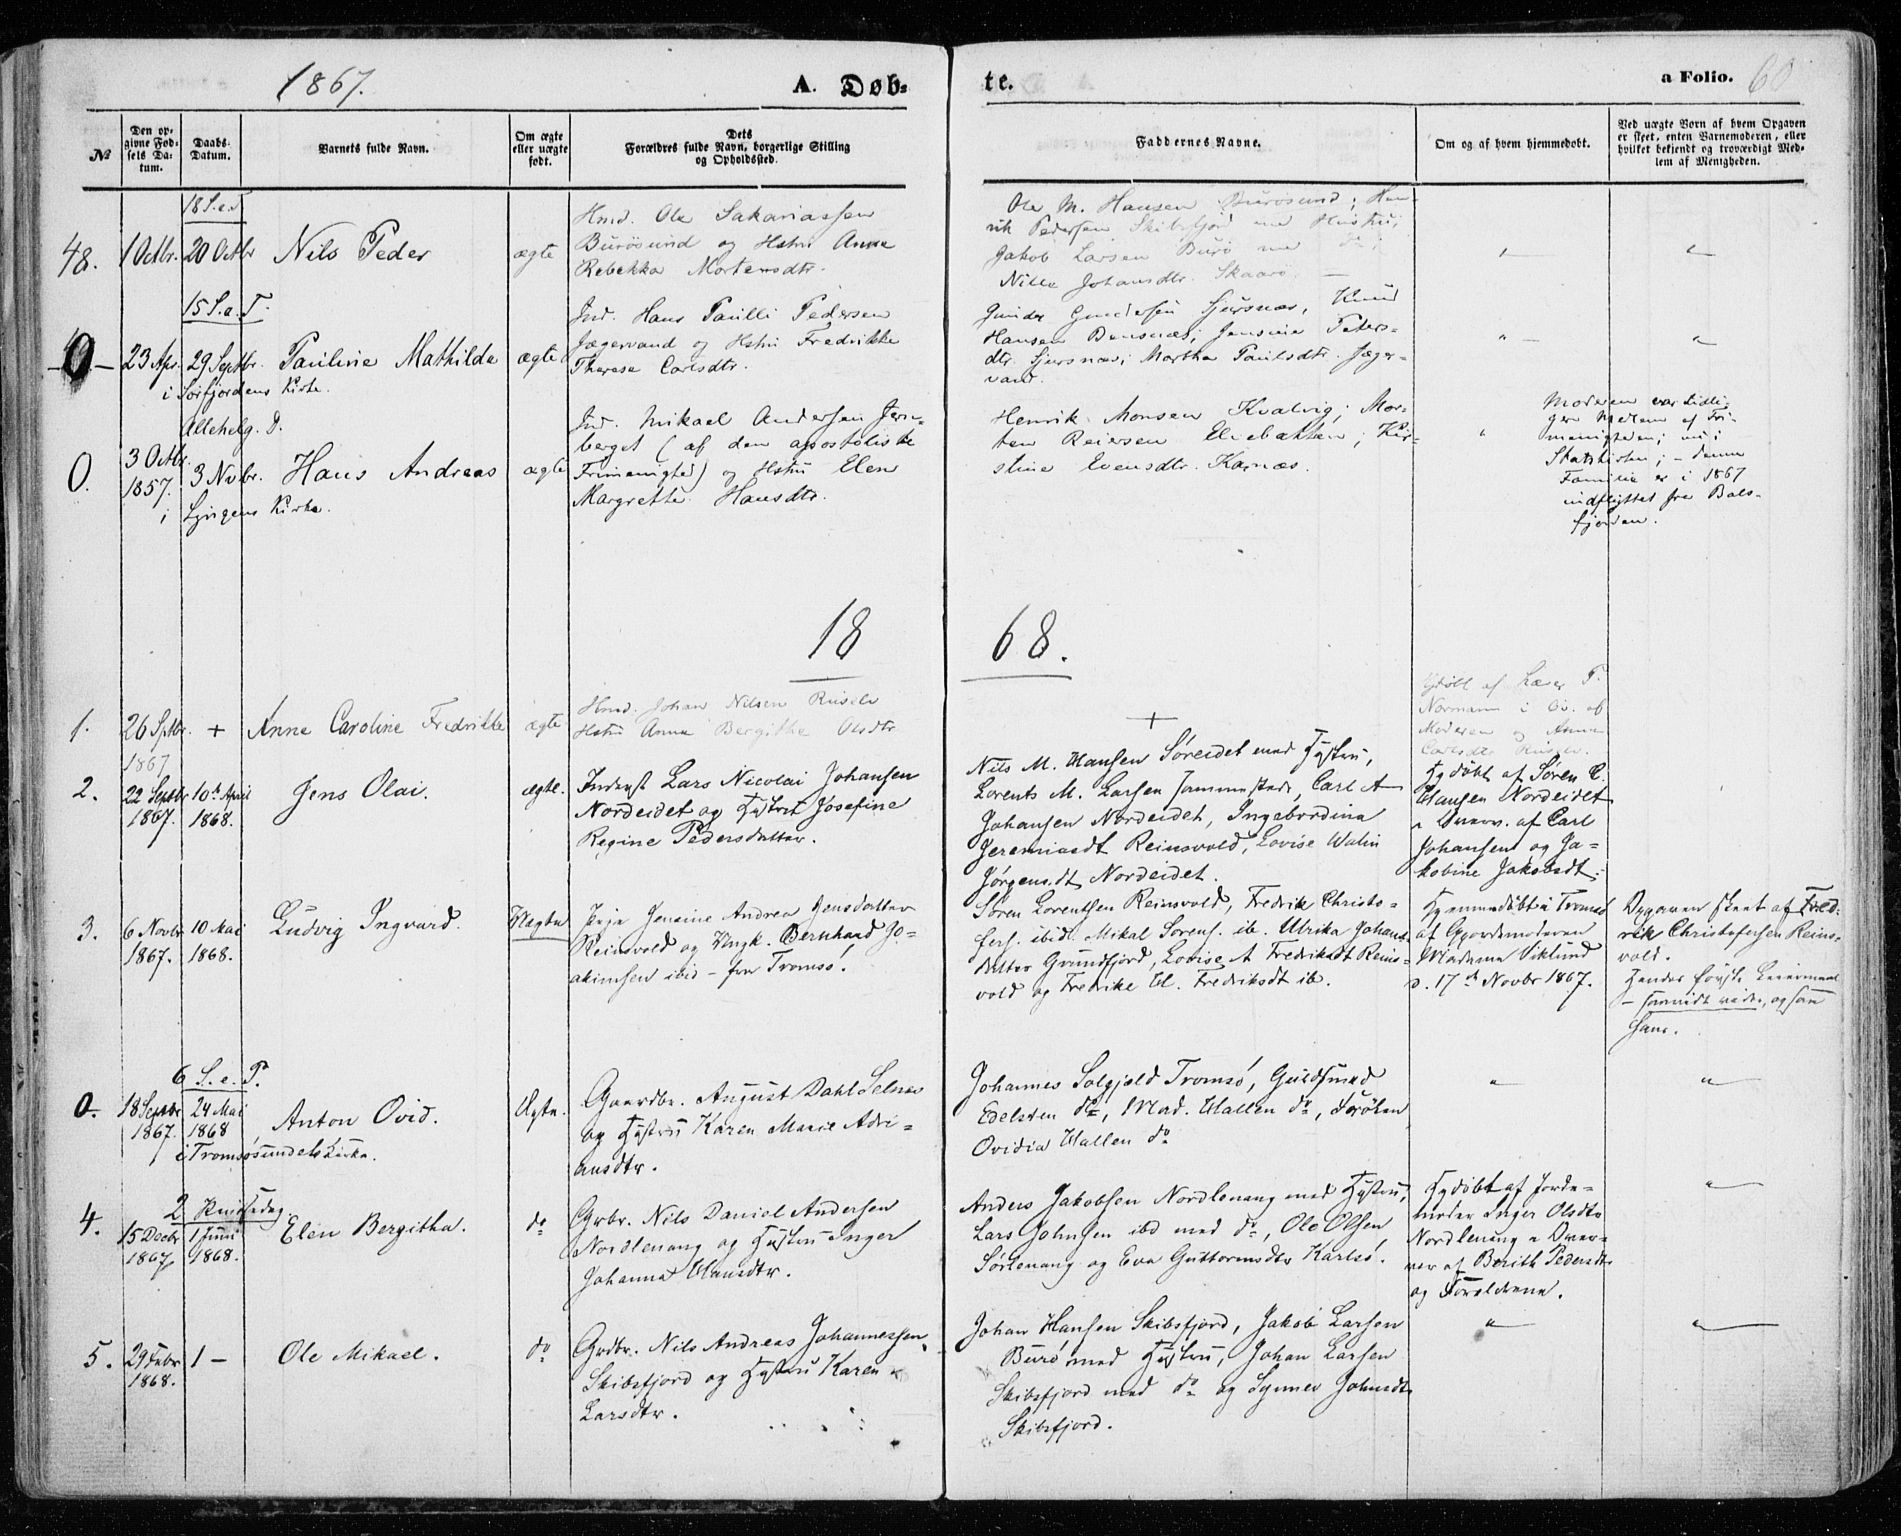 1867.
A. Døb-
te.
a Folio. 60
№
Den op-
givne Fød-
sels Da-
tum.
Daabs-
Datum.
Barnets fulde Navn.
Om ægte
eller uægte
født.
Dets
Forældres fulde Navn, borgerlige Stilling
og Opholdssted.
Faddernes Navne.
Om og af hvem hjemmedøbt.
Ved uægte Børn af hvem Opgaven
er skeet, enten Barnemoderen, eller
hvilket bekjendt og troværdigt Med-
lem af Menigheden.
18 S.e.T
48. 1 Octbr. 20 Octbr Nils Peder ægte
Hmd. Ole Sakariassen
Burøsund og Hstru Anne
Rebekka Mortensdtr.
Ole M. Hansen Burøsund; Hen-
rik Pedersen Skibsfjord med Hustru;
Jakob Larsen Burø med do;
Nille Johansdtr. Skaarø. —
" "
15 S.e.T.
0 23 Apr. 29 Septbr. Pauline Mathilde ægte
i Sørfjordens Kirke.
Ind. Hans Paulli Pedersen
Jægervand og Hstru Fredrikke
Therese Carlsdtr.
Gunder Gundersen Sjursnæs, Knud
Hansen Bensnæs; Jensine Peters-
dtr. Sjursnæs; Martha Paulsdtr. Jæger-
vand.
" "
Allehelg. D.
0. 3 Octbr. 1857. 3 Novbr. Hans Andreas ægte
i Lyngens Kirke.
Ind. Mikael Andersen Jern-
berget (af den apostoliske
Frimenighed) og Hstru Elen
Margrethe Hansdtr.
Henrik Monsen Kvalvig; Mor-
ten Reiersen Elvebakken; Kir-
stine Evensdtr. Karnæs.
"
Moderen var tidli-
gere Medlem af Fri-
menigheden; nu i
Statskirken; – denne
Familie er i 1867
indflyttet fra Bals-
fjorden.
18 68.
1. 26 Septbr. 1867 + Anne Caroline Fredrikke ægte
Hmd. Johan Nilsen
Hstru Anna Bergithe Olsdtr
+
Hjdøbt af Lærer P.
Normann i Ov. af
Moderen og Anne
Carlsdtr
2. 22 Septbr 1867. 10de April 1868. Jens Olai. ægte.
Inderst Lars Nicolai Johansen
Nordeidet og Hustru Josefine
Regine Pedersdatter.
Nils M. Hansen Søreidet med Hustru,
Lorents M. Larsen Jammerstad, Carl A
Johansen Nordeidet, Ingebordina
Jeremiasdt Reinsvold, Lovise Walin
Jørgensdt Nordeidet.
Hjdøbt af Søren C.
Hansen Nordeidet
i Overv. af Carl
Johansen og Ja-
kobine Jakobsdt.
3. 6 Novbr 1867. 10 Mai 1868. Ludvig Ingvard. Uægte
Pige Jensine Andrea Jensdatter
Reinsvold og Ungk. Bernhard Jo-
akimsen ibid – fra Tromsø.
Søren Lorentsen Reinsvold, Fredrik Christo-
fers. ibid. Mikal Sørens. ib. Ulrika Johans-
datter Grundfjord, Lovise A Fredriksdt Reins-
vold og Fredrike El. Fredriksdt ib.
Hjemmedøbt i Tromsø
af Gjordemoderen
Madame Viklund
d. 17de Novbr 1867.
Opgaven skeet af Fred-
rik Christofersen Reins-
vold.
Hendes første Leiermaal
–, ogsaa
hans.
6 S. e. P.
0. 18 Septbr 1867. 24 Mai 1868 Anton Ovid. Ægte.
i Tromsøsundets Kirke.
Gaardbr. August Dahl Selnes
og Hustru Karen Marie Adri-
ansdtr.
Johannes Solgjeld Tromsø, Guldsmed
Edelsten do, Mad. Hallen do, Frøken
Ovidia Hallen do
" "
2 Pindsedag.
4. 15 Decbr 1867. 1 Juni 1868. Elen Bergitha. do
Grbr. Nils Daniel Andersen
Nordlenang og Hustru Inger
Johanna Hansdtr.
Anders Jakobsen Nordlenang med Hustru,
Lars Johnsen ibd med do, Ole Olsen
Sørlenang og Eva Guttormsdtr Karlsø.
Hjdøbt af Jorde-
moder Inger Olsdtr
Nordlenang i Over-
vær af Berith Pedersdtr
og Forældrene.
"
5. 29 Febr 1868. 1 – Ole Mikael. do
Grdbr. Nils Andreas Johannessen
Skibsfjord og Hustru Karen
Larsdtr.
Johan Hansen Skibsfjord, Jakob Larsen
Burø med Hustru, Johan Larsen
Skibsfjord med do og Synnev Johnsdt
Skibsfjord.
" "